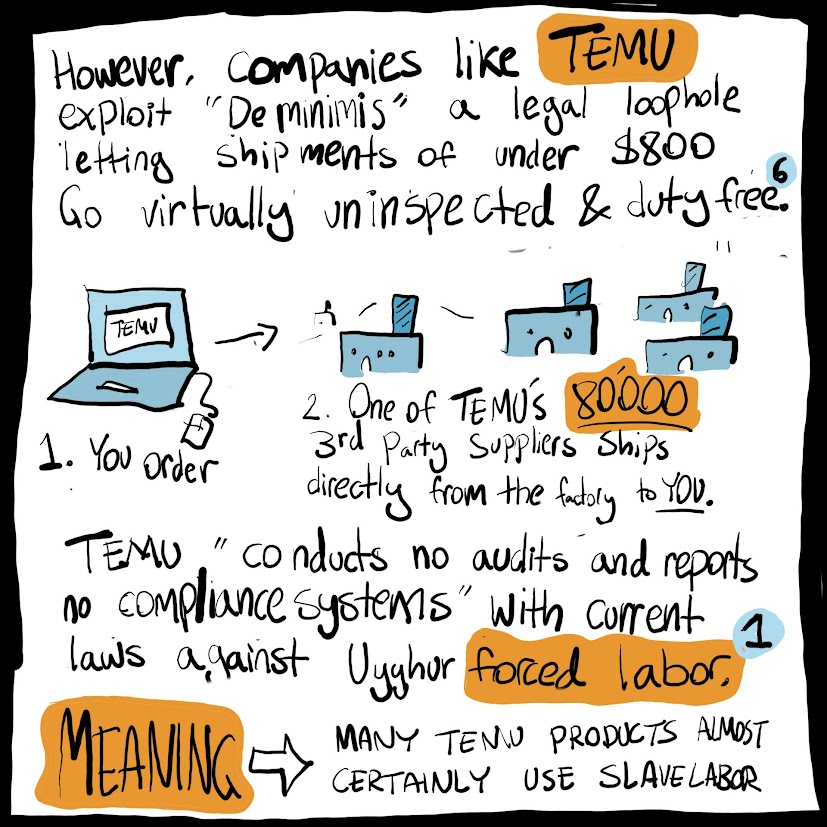 However, companies like TEMU
exploit "De minimis" a legal loophole
letting shipments of under $800
Go virtually uninspected & duty free. 6
TEMU
1. You order
2. One of TEMU's 80'000
3rd Party Suppliers Ships
directly from the factory to YOU.
TEMU "conducts no audits and reports
no compliance systems" with current
laws against Uyghur forced labor. 1
MEANING
MANY TEMU PRODUCTS ALMOST
CERTAINLY USE SLAVE LABOR